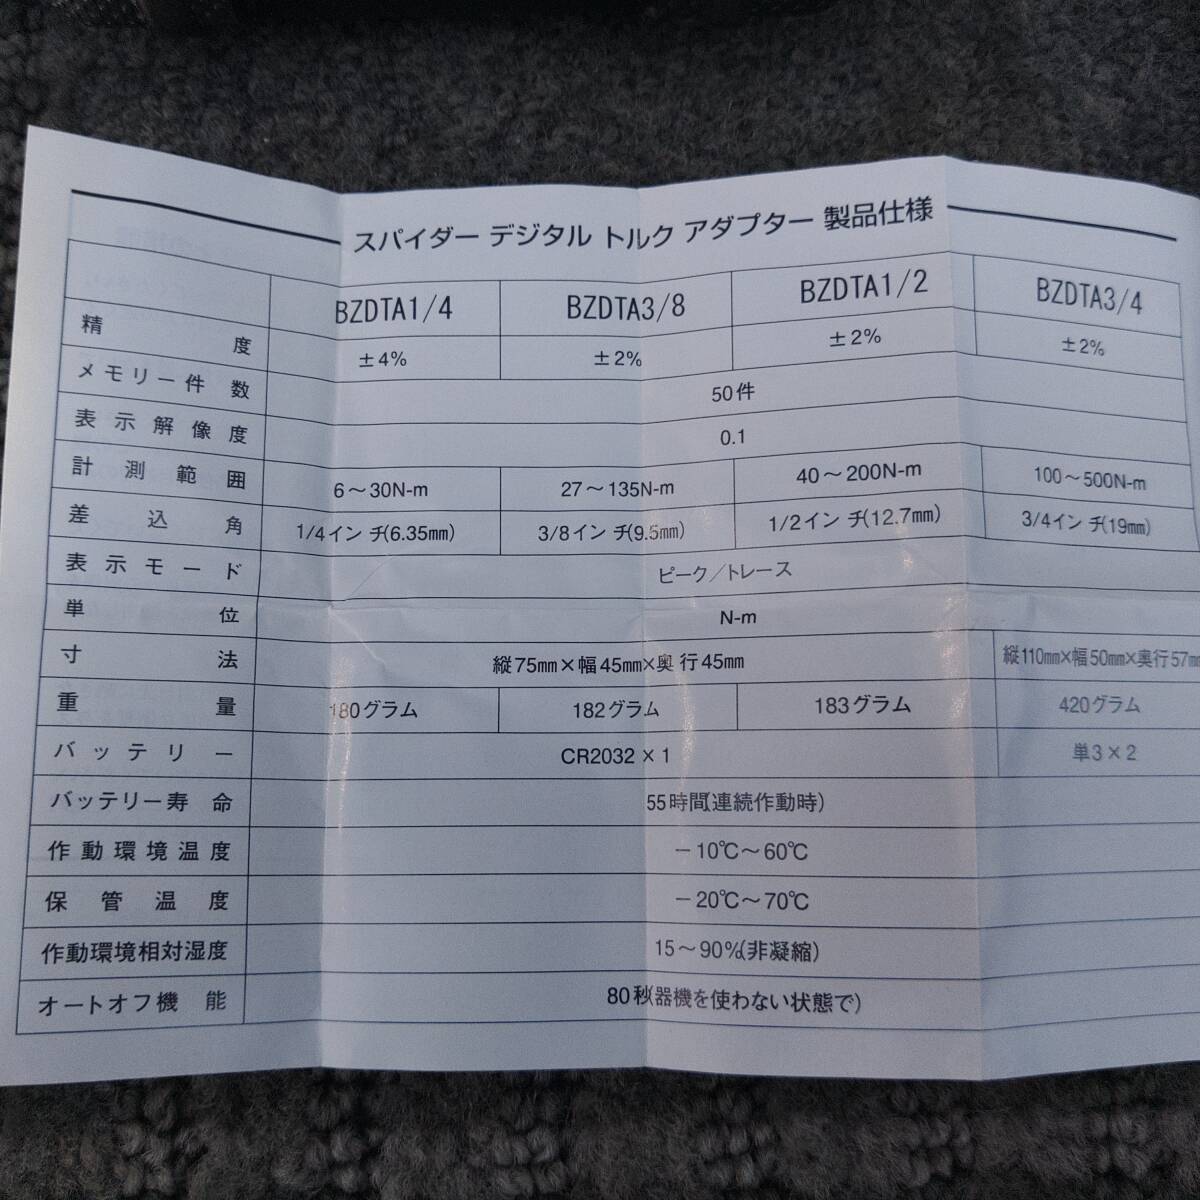 スパイダー デジタル トルク アダプター 製品仕様
BZDTA1/4 BZDTA3/8 BZDTA1/2 BZDTA3/4
精度 ±4% ±2% ±2% ±2%
メモリー件数 50件
表示解像度 0.1
計測範囲 6～30N-m 27～135N-m 40～200N-m 100～500N-m
差込角 1/4インチ(6.35mm) 3/8インチ(9.5mm) 1/2インチ(12.7mm) 3/4インチ(19mm)
表示モード ピーク／トレース
単位 N-m
寸法 縦75mm×幅45mm×奥行45mm 縦110mm×幅50mm×奥行57mm
重量 180グラム 182グラム 183グラム 420グラム
バッテリー CR2032×1 単3×2
バッテリー寿命 55時間(連続作動時)
作動環境温度 －10℃～60℃
保管温度 －20℃～70℃
作動環境相対湿度 15～90%(非凝縮)
オートオフ機能 80秒(器機を使わない状態で)